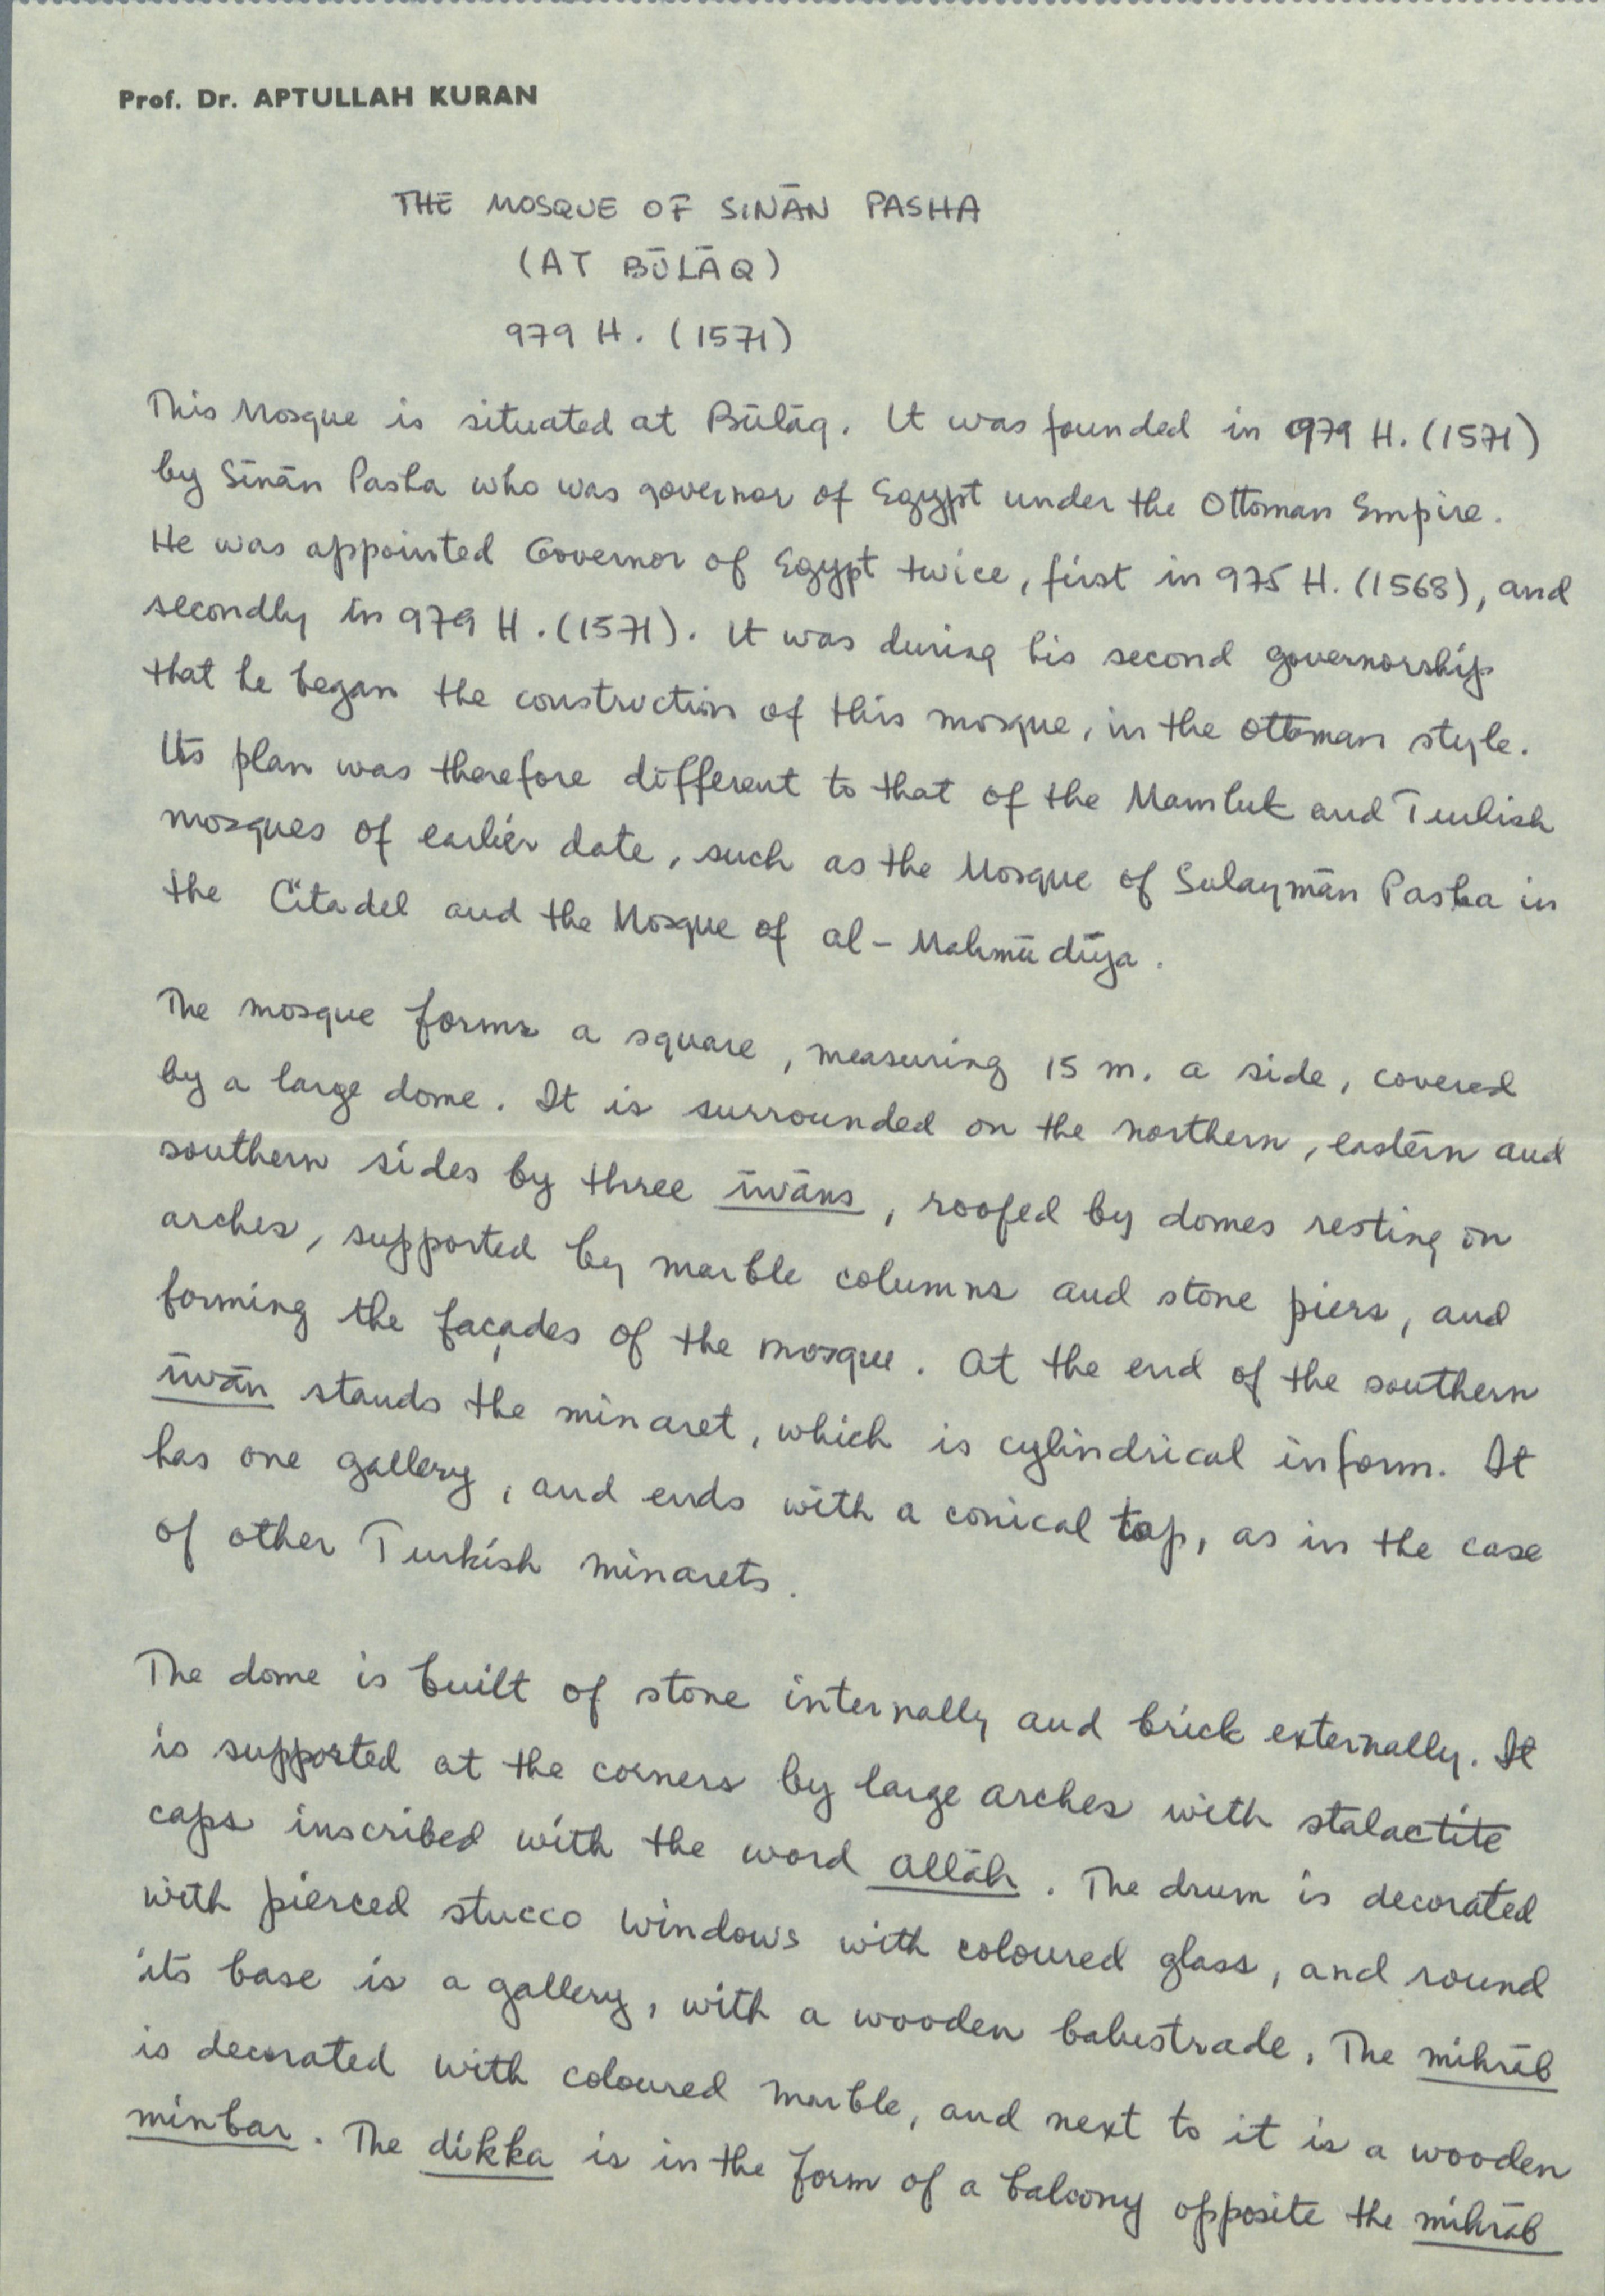 Prof. Dr. APTULLAH KURAN
THE MOSQUE OF SINĀN PASHA
(AT BŪLĀQ)
979 H. (1571)
This Mosque is situated at Būlāq. It was founded in 979 H. (1571)
by Sīnān Pasha who was governor of Egypt under the Ottoman Empire.
He was appointed Governor of Egypt twice, first in 975 H. (1568), and
secondly in 979 H. (1571). It was during his second governorship
that he began the construction of this mosque, in the Ottoman style.
Its plan was therefore different to that of the Mamluk and Turkish
mosques of earlier date, such as the Mosque of Sulaymān Pasha in
the Citadel and the Mosque of al-Mahmūdīya.
The mosque forms a square, measuring 15 m. a side, covered
by a large dome. It is surrounded on the northern, eastern and
southern sides by three īwāns, roofed by domes resting on
arches, supported by marble columns and stone piers, and
forming the façades of the mosque. At the end of the southern
īwān stands the minaret, which is cylindrical in form. It
has one gallery, and ends with a conical top, as in the case
of other Turkish minarets.
The dome is built of stone internally and brick externally. It
is supported at the corners by large arches with stalactite
caps inscribed with the word allāh. The drum is decorated
with pierced stucco windows with coloured glass, and round
its base is a gallery, with a wooden balustrade. The mihrāb
is decorated with coloured marble, and next to it is a wooden
minbar. The dikka is in the form of a balcony opposite the mihrāb